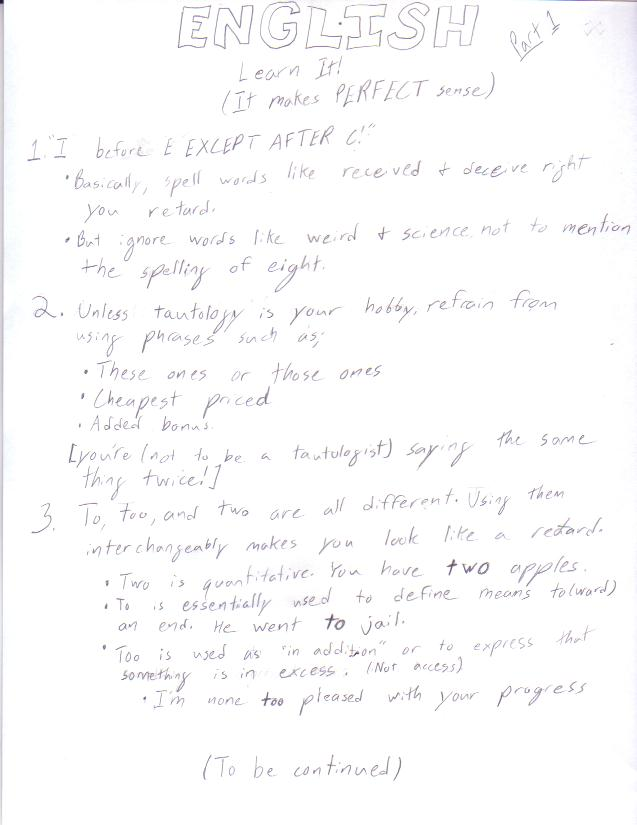 ENGLISH
Part 1
Learn It!
(It makes PERFECT sense)
1. "I before E EXCEPT AFTER C!"
• Basically, spell words like received + deceive right
you retard.
• But ignore words like weird + science, not to mention
the spelling of eight.
2. Unless tautology is your hobby, refrain from
using phrases such as;
• These ones or those ones
• Cheapest priced
• Added bonus.
[you're (not to be a tautologist) saying the same
thing twice!]
3. To, too, and two are all different. Using them
interchangeably makes you look like a retard.
• Two is quantitative. You have two apples.
• To is essentially used to define means to(ward)
an end. He went to jail.
• Too is used as "in addition" or to express that
something is in excess. (Not access)
• I'm none too pleased with your progress
(To be continued)